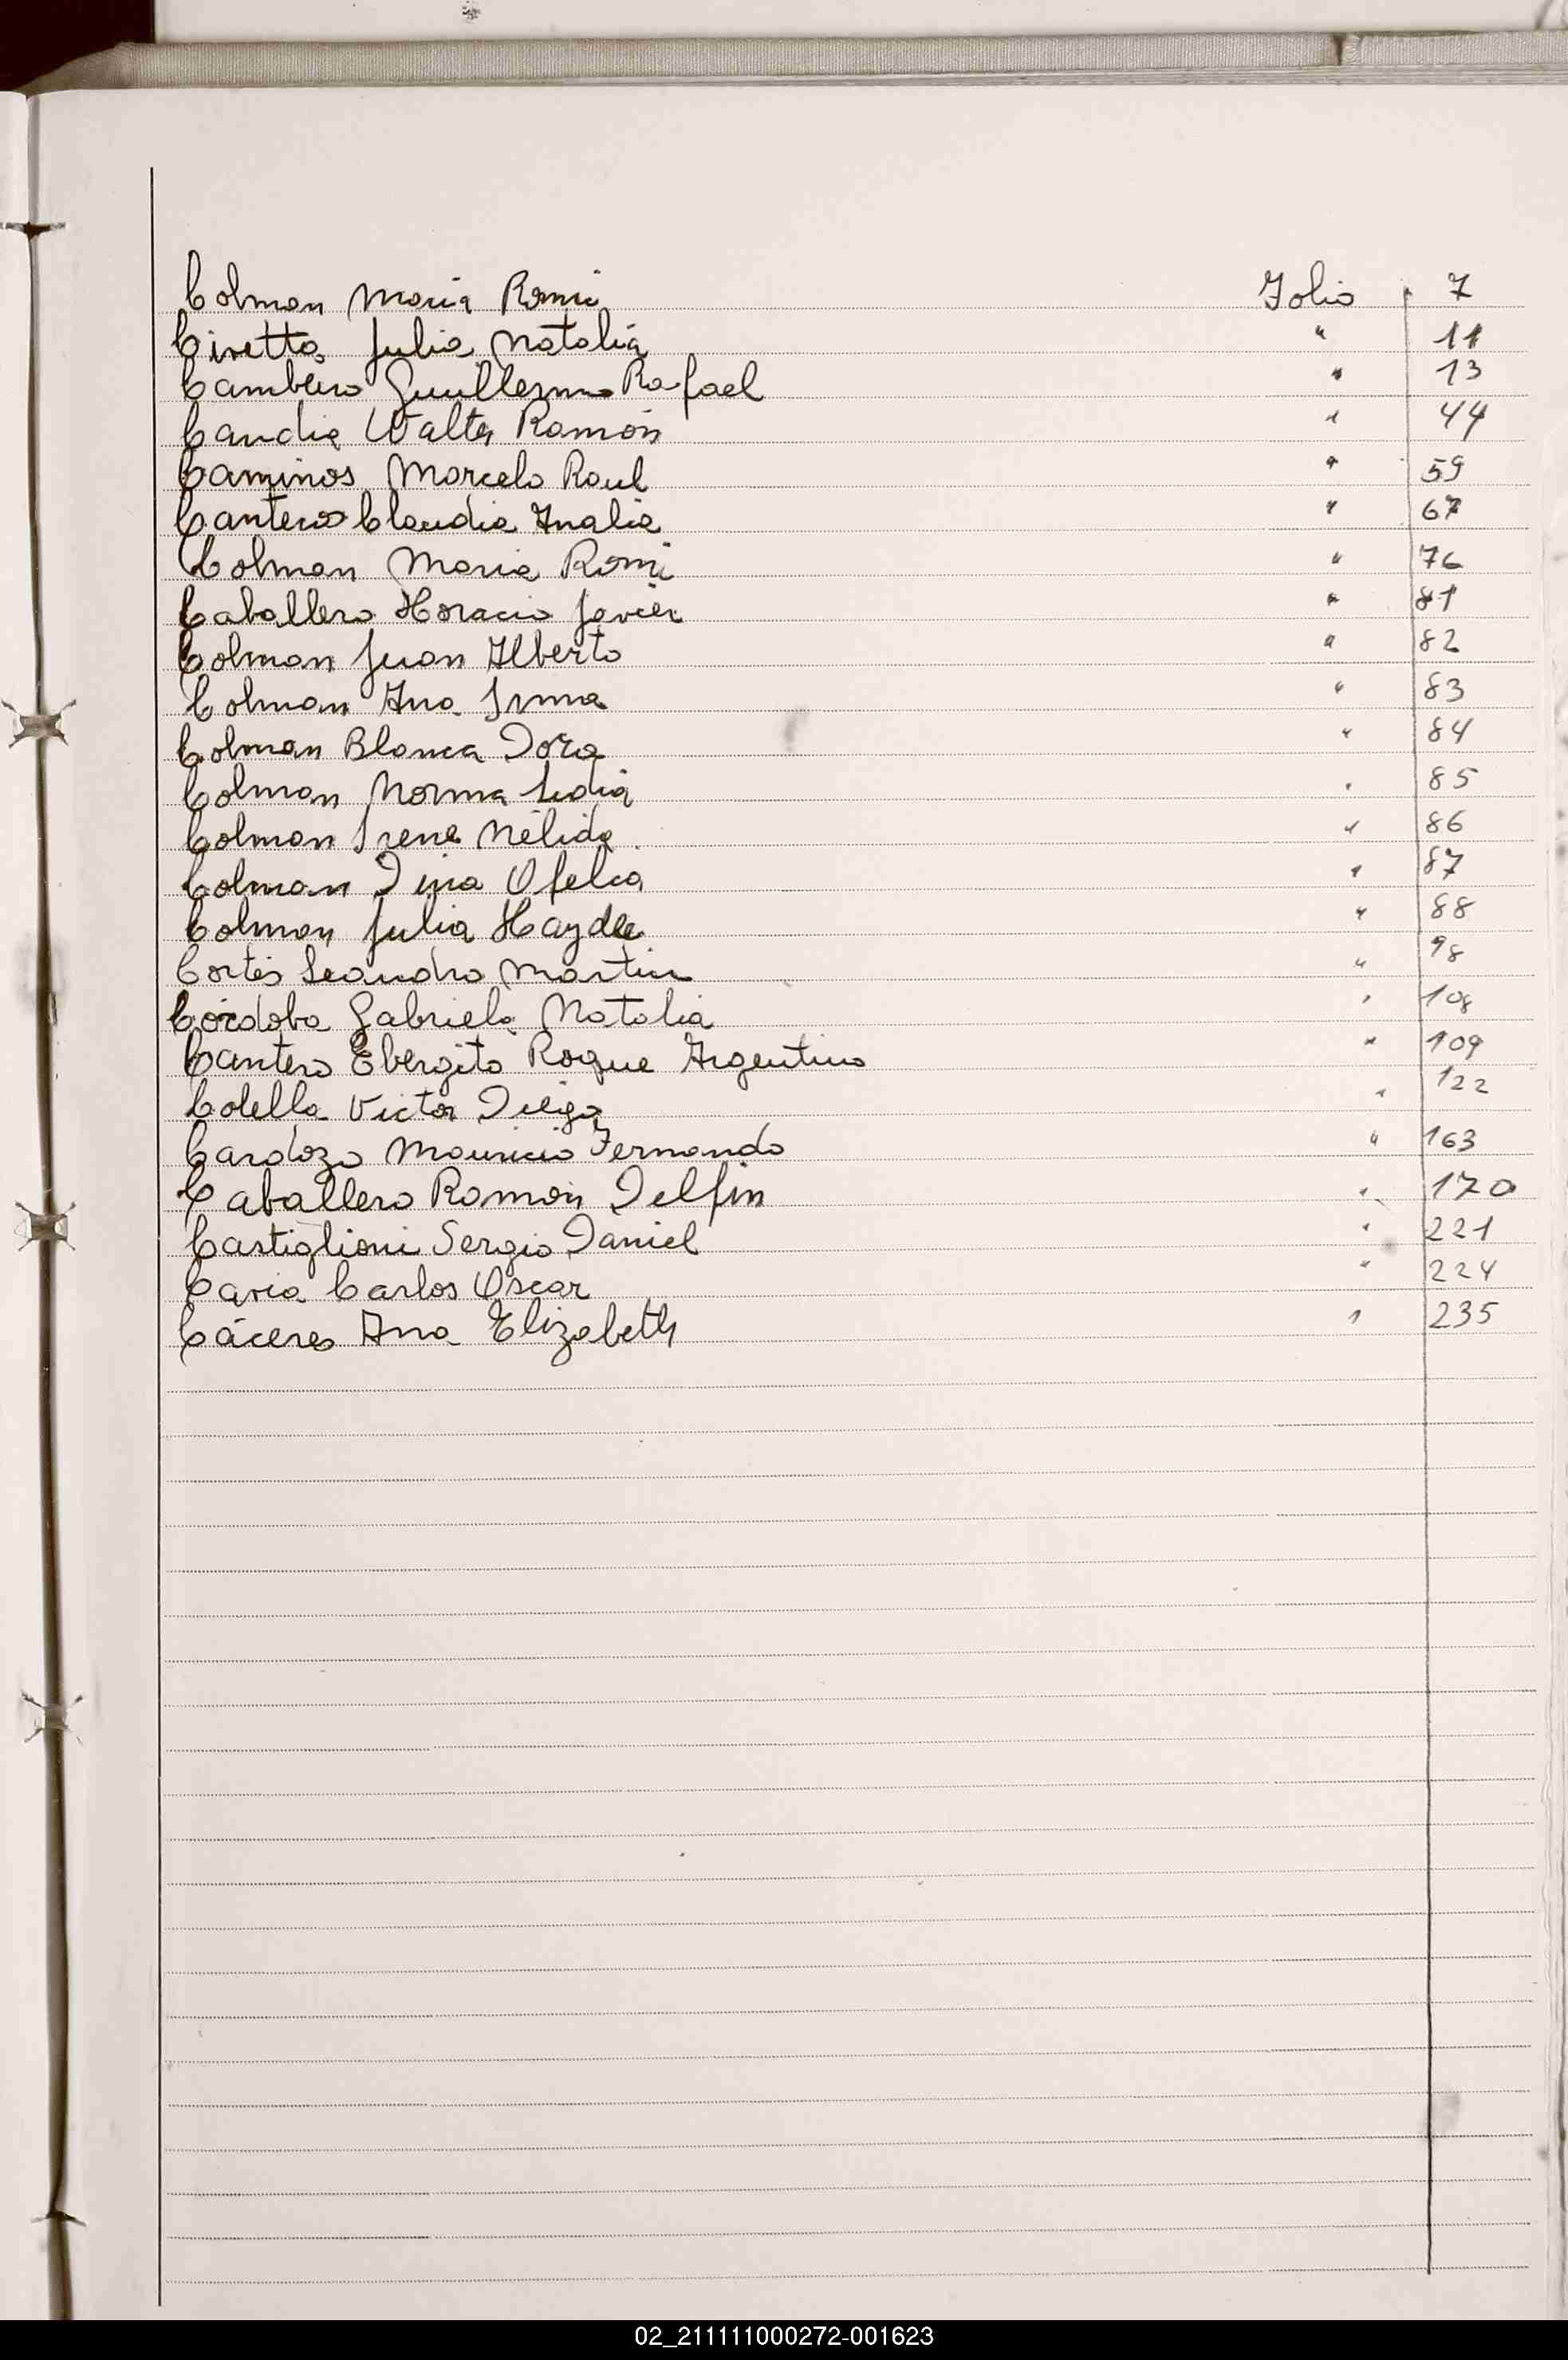 Colman Maria Romi Folio 7
Civetta Julia Natalia " 11
Cambeiro Guillermo Rafael " 13
Candia Walter Ramón " 44
Caminos Marcelo Raul " 59
Cantero Claudia Analia " 67
Colman Maria Romi " 76
Caballero Horacio Javier " 81
Colman Juan Alberto " 82
Colman Ana Irma " 83
Colman Blanca Dora " 84
Colman Norma Lidia " 85
Colman Irene Nélida " 86
Colman Dina Ofelia " 87
Colman Julia Haydee " 88
Cortés Leandro Martin " 98
Córdoba Gabriela Natalia " 108
Cantero Ebergito Roque Argentino " 109
Colella Victor Diego " 122
Cardozo Mauricio Fernando " 163
Caballero Ramón Delfin " 170
Castiglioni Sergio Daniel " 221
Caria Carlos Oscar " 224
Cáceres Ana Elizabeth " 235
02_211111000272-001623